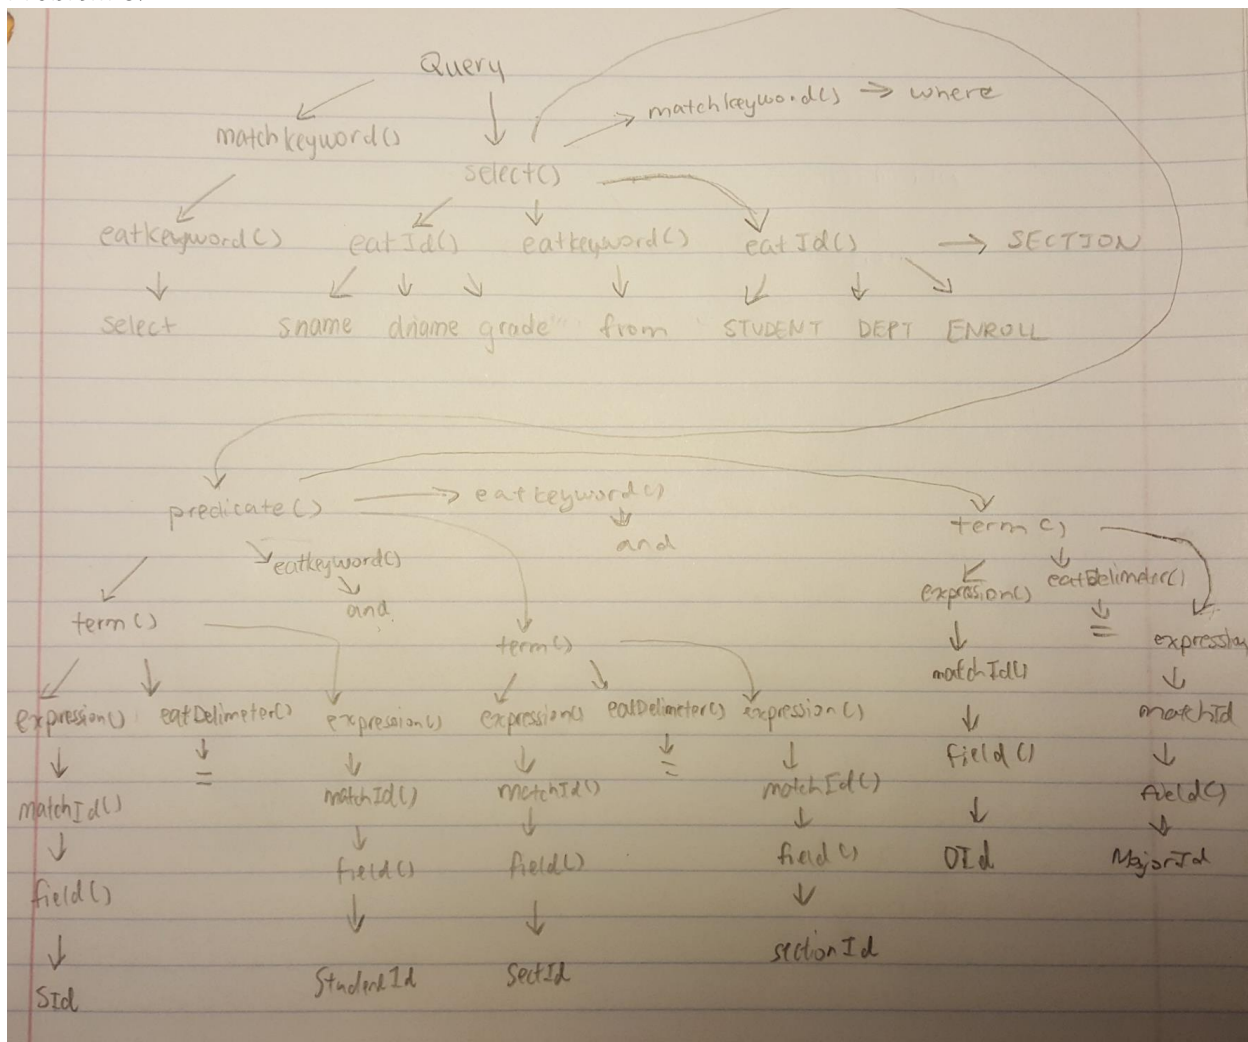 Query
matchkeyword() → where
matchkeyword()
select()
eatkeyword() eatId() eatkeyword() eatId() → SECTION
select sname dname grade from STUDENT DEPT ENROLL
predicate() → eatkeyword()
term()
and
eatkeyword()
eatDelimeter()
expression()
and
=
term()
term()
expression
matchId()
expression() eatDelimeter() expression() expression() eatDelimeter() expression()
matchId
= =
field()
matchId() matchId() matchId() matchId()
field()
field() field() field()
DId MajorId
field()
sectionId
StudentId SectId
SId